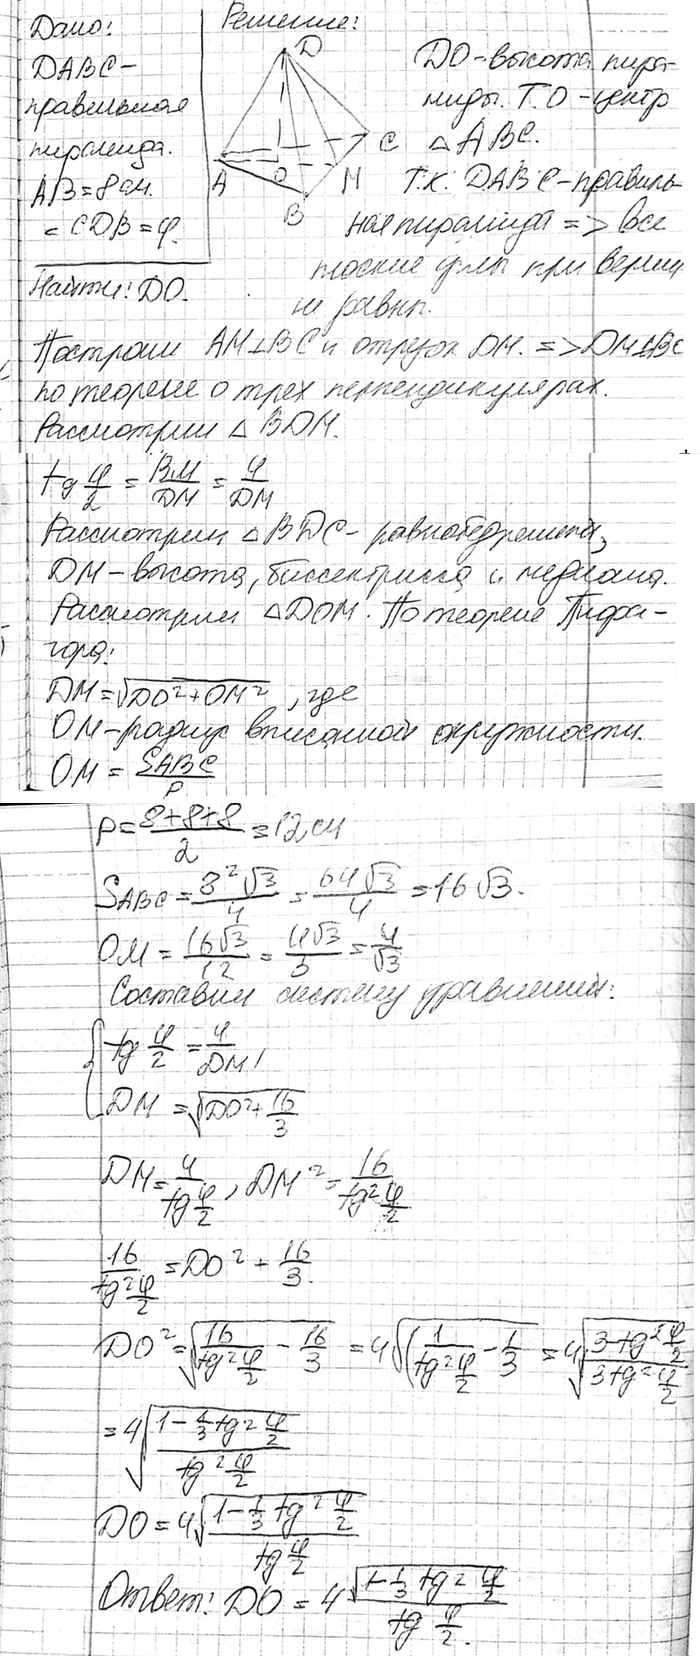 Дано:
DABC –
правильная
пирамида.
AB = 8 см.
∠CDB = φ.
Найти: DO.
Решение:
D
C
A
O
M
B
DO – высота пира-
миды. Т.O – центр
△ABC.
Т.к. DABC – правиль-
ная пирамида => все
плоские углы при верши
не равны.
Построим AM⊥BC и отрезок DM. => DM⊥BC
по теореме о трех перпендикулярах.
Рассмотрим △BDM.
tg φ/2 = BM/DM = 4/DM
Рассмотрим △BDC – равнобедренный,
DM – высота, биссектрисса и медиана.
Рассмотрим △DOM. По теореме Пифа-
гора:
DM = √(DO² + OM²), где
OM – радиус вписанной окружности.
OM = SABC/P
P = (8+8+8)/2 = 12 см
SABC = 8²√3/4 = 64√3/4 = 16√3.
OM = 16√3/12 = 4√3/3 = 4/√3
Составим систему уравнений:
{ tg φ/2 = 4/DM,
DM = √(DO² + 16/3)
DM = 4/(tg φ/2), DM² = 16/(tg² φ/2)
16/(tg² φ/2) = DO² + 16/3.
DO² = √(16/(tg² φ/2) - 16/3) = 4√(1/(tg² φ/2) - 1/3) = 4√((3 - tg² φ/2)/(3 tg² φ/2))
= 4√((1 - 1/3 tg² φ/2)/(tg² φ/2))
DO = 4√(1 - 1/3 tg² φ/2)/(tg φ/2)
Ответ: DO = 4√(1 - 1/3 tg² φ/2)/(tg φ/2).